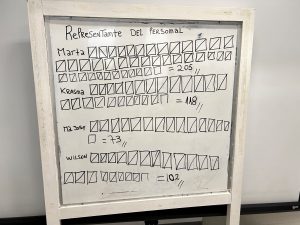 Representante del Personal
Marta
= 205
= 118
Ma Jose
= 73
Wilson
= 102